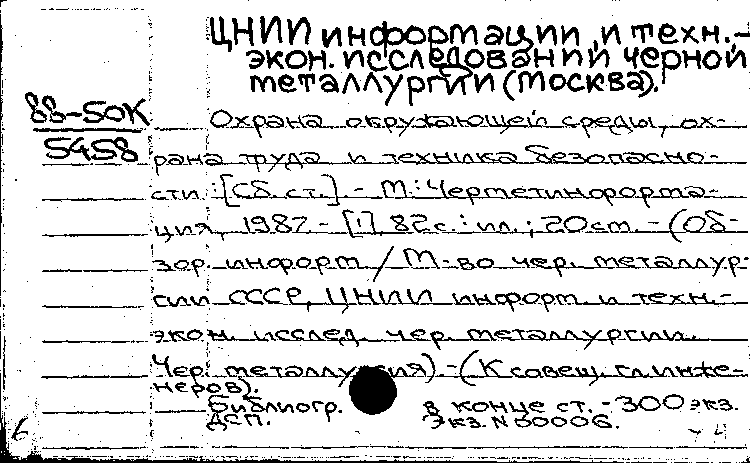 ЦНИИ информации и техн.-
экон. исследований черной
металлургии (Москва).
88-50К
5458
Охрана окружающей среды, ох-
рана труда и техника безопасно-
сти: [Сб. ст.]. - М.: Черметинформа-
ция, 1987. - [1], 82 с.: ил.; 20 см. - (Об-
зор. информ / М-во чер. металлур-
гии СССР, ЦНИИ информ. и техн.-
экон. исслед. чер. металлургии.
Чер. металлургия) - (К совещ. гл. инже-
неров).
Библиогр. в конце ст. - 300 экз.
ДСП. Экз. N 00006.
6